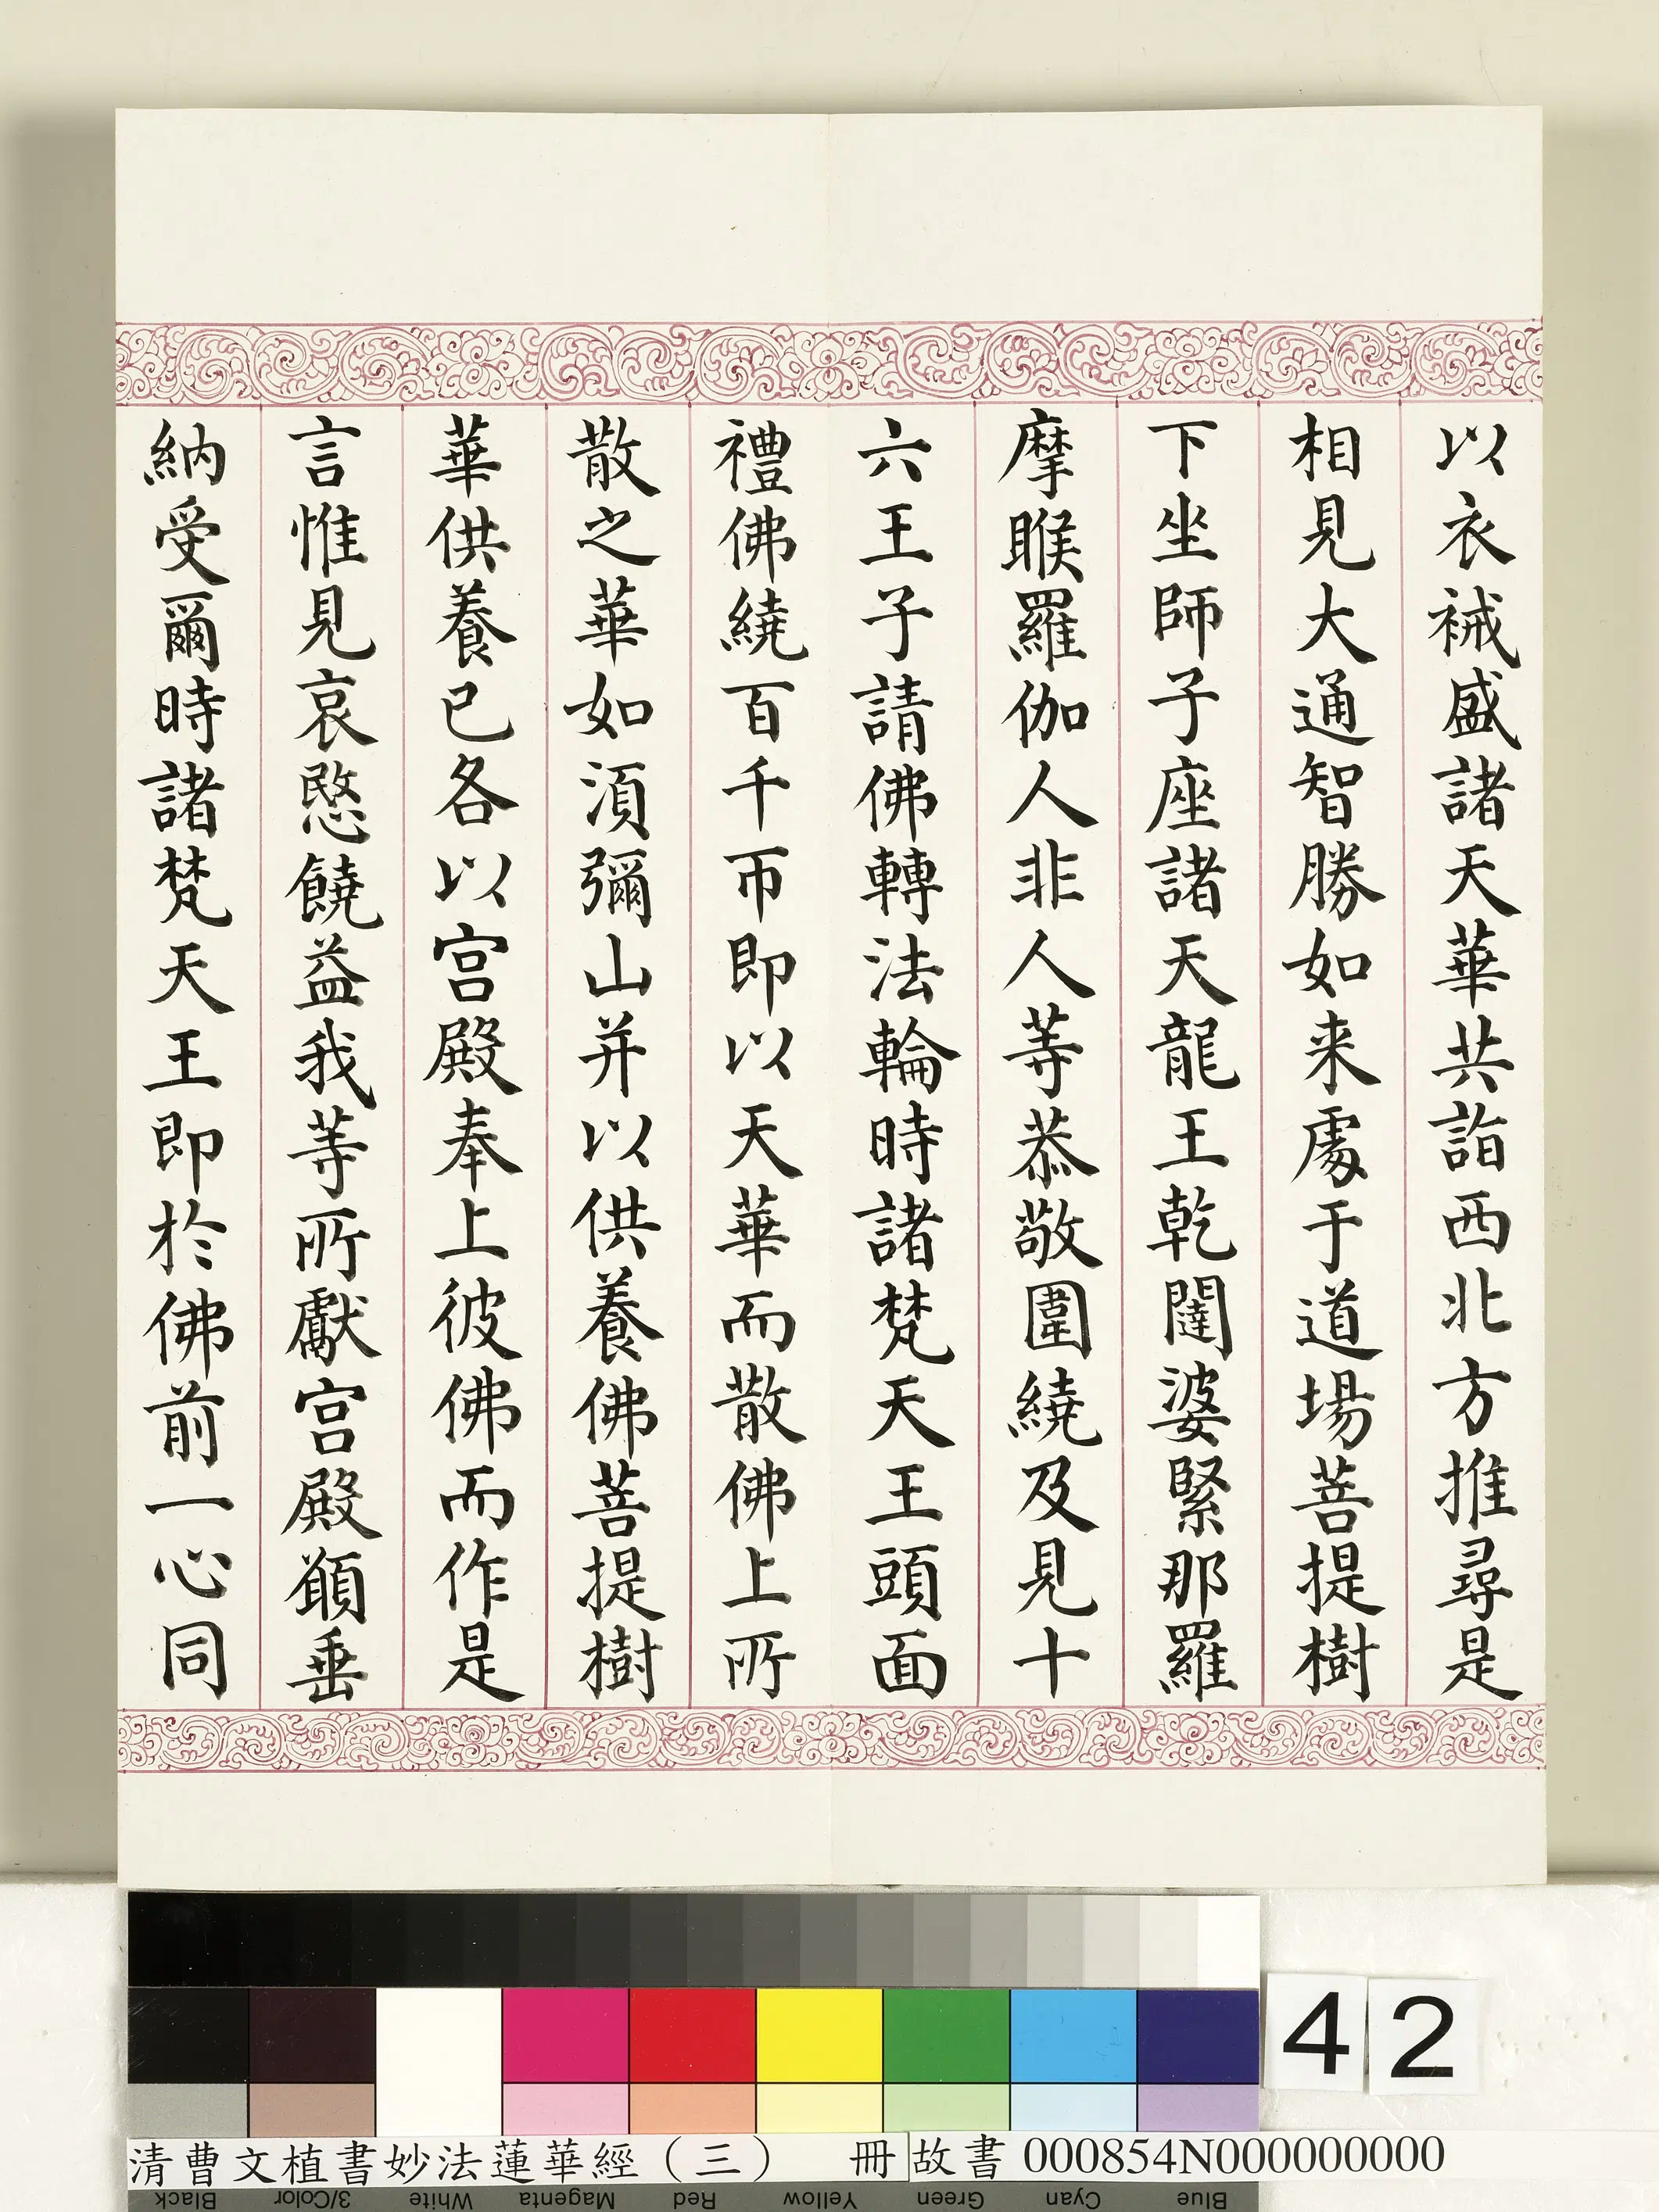 以衣祴盛諸天華共詣西北方推尋是
相見大通智勝如来處于道場菩提樹
下坐師子座諸天龍王乾闥婆緊那羅
摩睺羅伽人非人等恭敬圍繞及見十
六王子請佛轉法輪時諸梵天王頭面
禮佛繞百千帀即以天華而散佛上所
散之華如湏彌山并以供養佛菩提樹
華供養已各以宫殿奉上彼佛而作是
言惟見哀愍饒益我等所獻宫殿願垂
納受爾時諸梵天王即於佛前一心同
42
清曹文植書妙法蓮華經（三） 冊 故書 000854N000000000
Black 3/Color White Magenta Red Yellow Green Cyan Blue